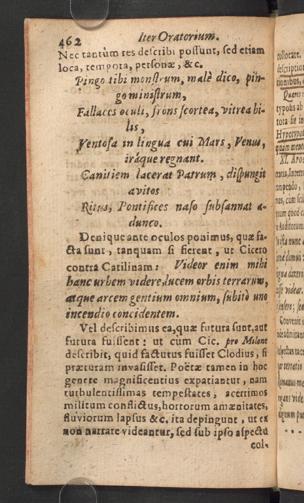 462 Iter Oratorium.
Nec tantùm res describi possunt, sed etiam
loca, tempora, personæ, &c.
Pingo tibi monstrum, malè dico, pin-
go ministrum,
Fallaces oculi, frons scortea, vitrea bi-
lis,
Ventosa in lingua cui Mars, Venus,
iráque regnant.
Canitiem lacerat Patrum, dispungit
avitos
Ritus, Pontifices naso subsannat a-
dunco.
Denique ante oculos ponimus, quæ fa-
cta sunt, tanquam si fierent, ut Cicero
contra Catilinam: Videor enim mihi
hanc urbem videre, lucem orbis terrarum,
atque arcem gentium omnium, subitò uno
incendio concidentem.
Vel describimus ea, quæ futura sunt, aut
futura fuissent: ut cum Cic. pro Milone
describit, quid facturus fuisset Clodius, si
præturam invasisset. Poëtæ tamen in hoc
genere magnificentius expatiantur, nam
turbulentissimas tempestates, acerrimos
militum conflictus, hortorum amænitates,
fluviorum lapsus &c. ita depingunt, ut ea
non narrare videantur, sed sub ipso aspectu
col-